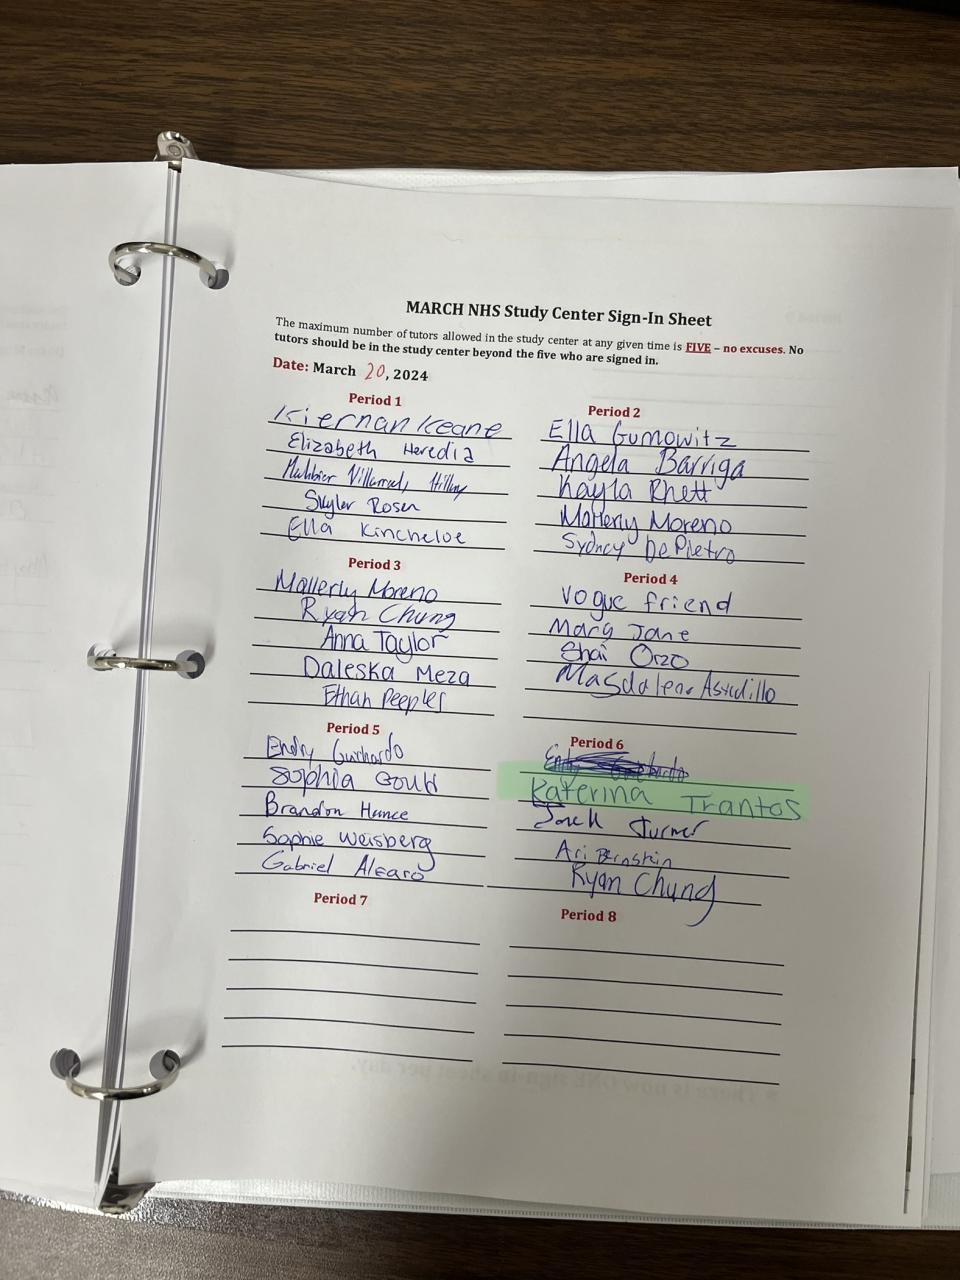 MARCH NHS Study Center Sign-In Sheet
The maximum number of tutors allowed in the study center at any given time is FIVE – no excuses. No
tutors should be in the study center beyond the five who are signed in.
Date: March 20, 2024
Period 1
Kiernan Keane
Elizabeth Heredia
Villarreal, Hillary
Skyler Rosen
Ella Kincheloe
Period 2
Ella Gumowitz
Angela Barriga
Kayla Rhett
Mallerly Moreno
Sydney DePietro
Period 3
Mallerly Moreno
Ryan Chung
Anna Taylor
Daleska Meza
Ethan Peeples
Period 4
Vogue friend
Mary Jane
Orzo
Magdalena Astudillo
Period 5
Endry Guichardo
Sophia Gould
Brandon Hunce
Sophie Weisberg
Gabriel Alfaro
Period 6
Katerina Trantos
Jack Turner
Ari Bernstein
Ryan Chung
Period 7
Period 8